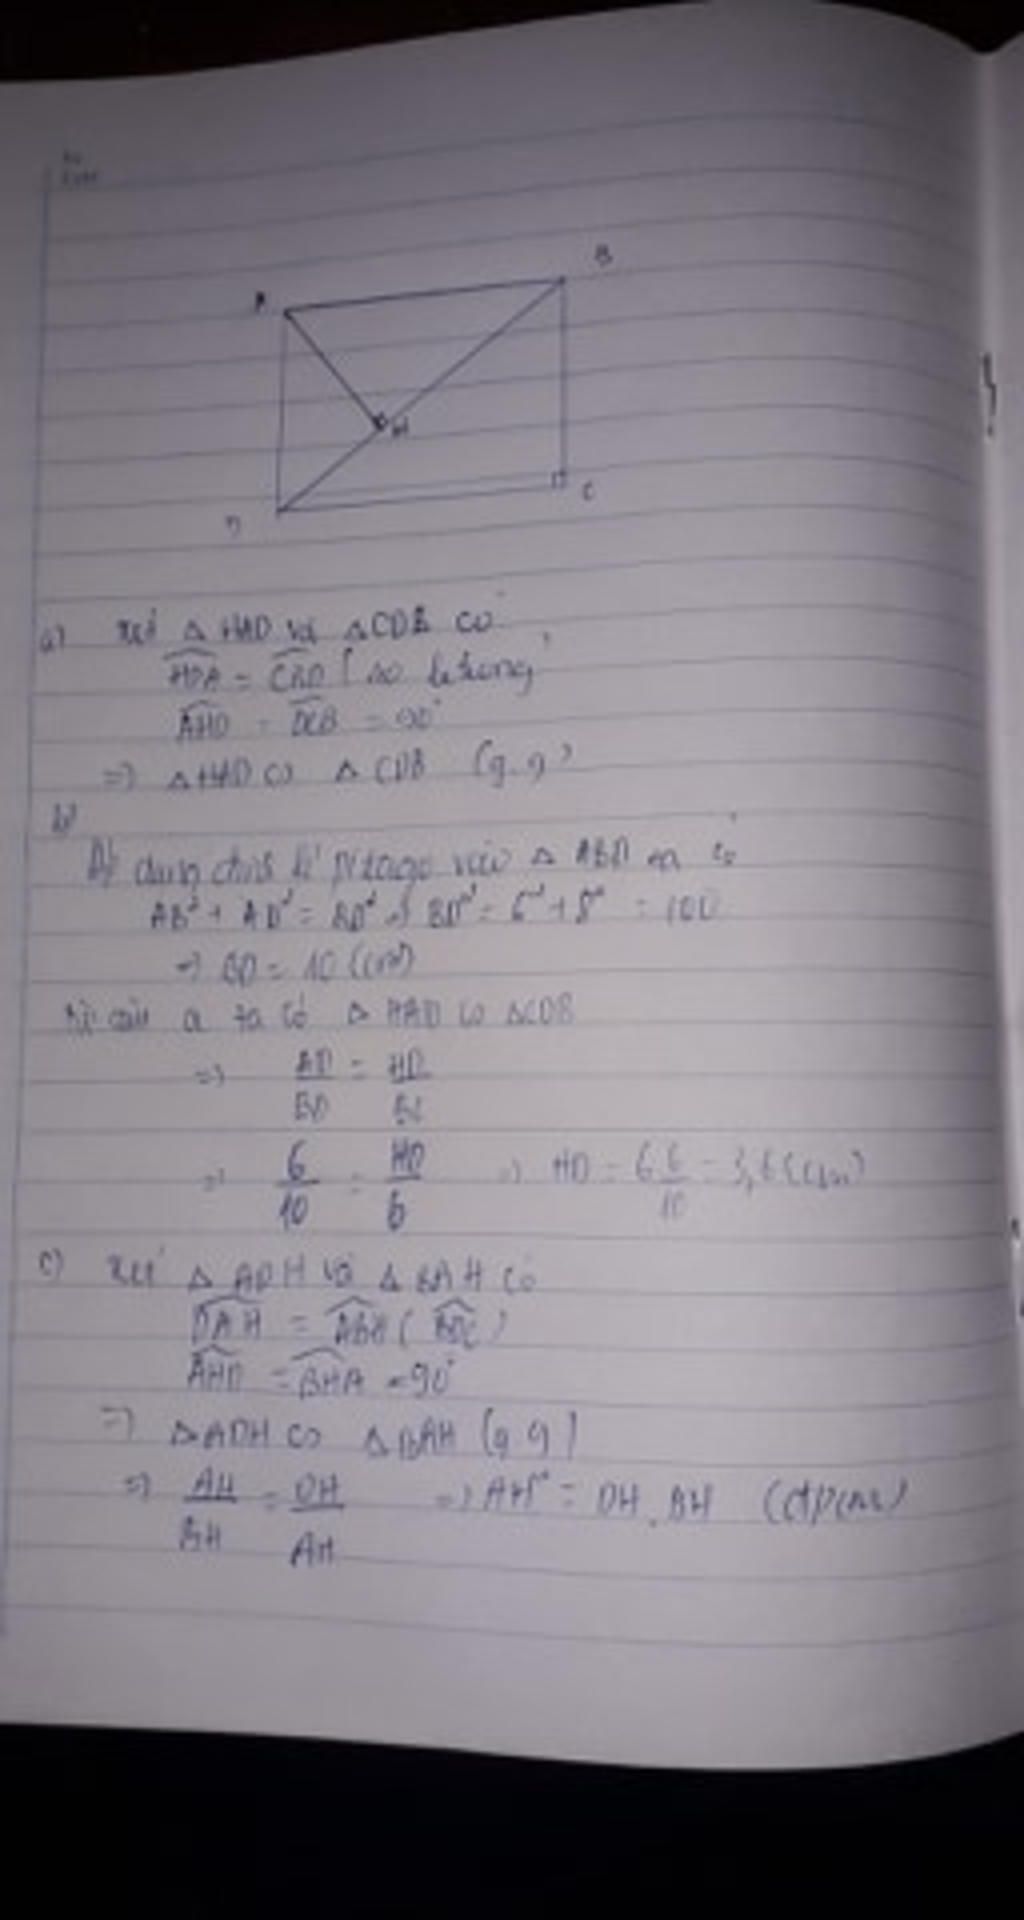 A
B
H
D
C
a) Xét △HAD và △CDB có
HDA = CBD (so le trong)
AHD = DCB = 90°
=> △HAD ∽ △CDB (g.g)
b)
Áp dụng định lí Pitago vào △ ABD ta có
AB² + AD² = BD² => BD² = 6² + 8² = 100
=> BD = 10 (cm)
câu a ta có △ HAD ∽ △CDB
=> AD/BD = HD/BC
=> 6/10 = HD/6 => HD = 6.6/10 = 3,6 (cm)
c) Xét △ ADH và △ BAH có
DAH = ABH ( BDC )
AHD = BHA = 90°
=> △ADH ∽ △BAH (g.g)
=> AH/BH = DH/AH => AH² = DH . BH (đpcm)